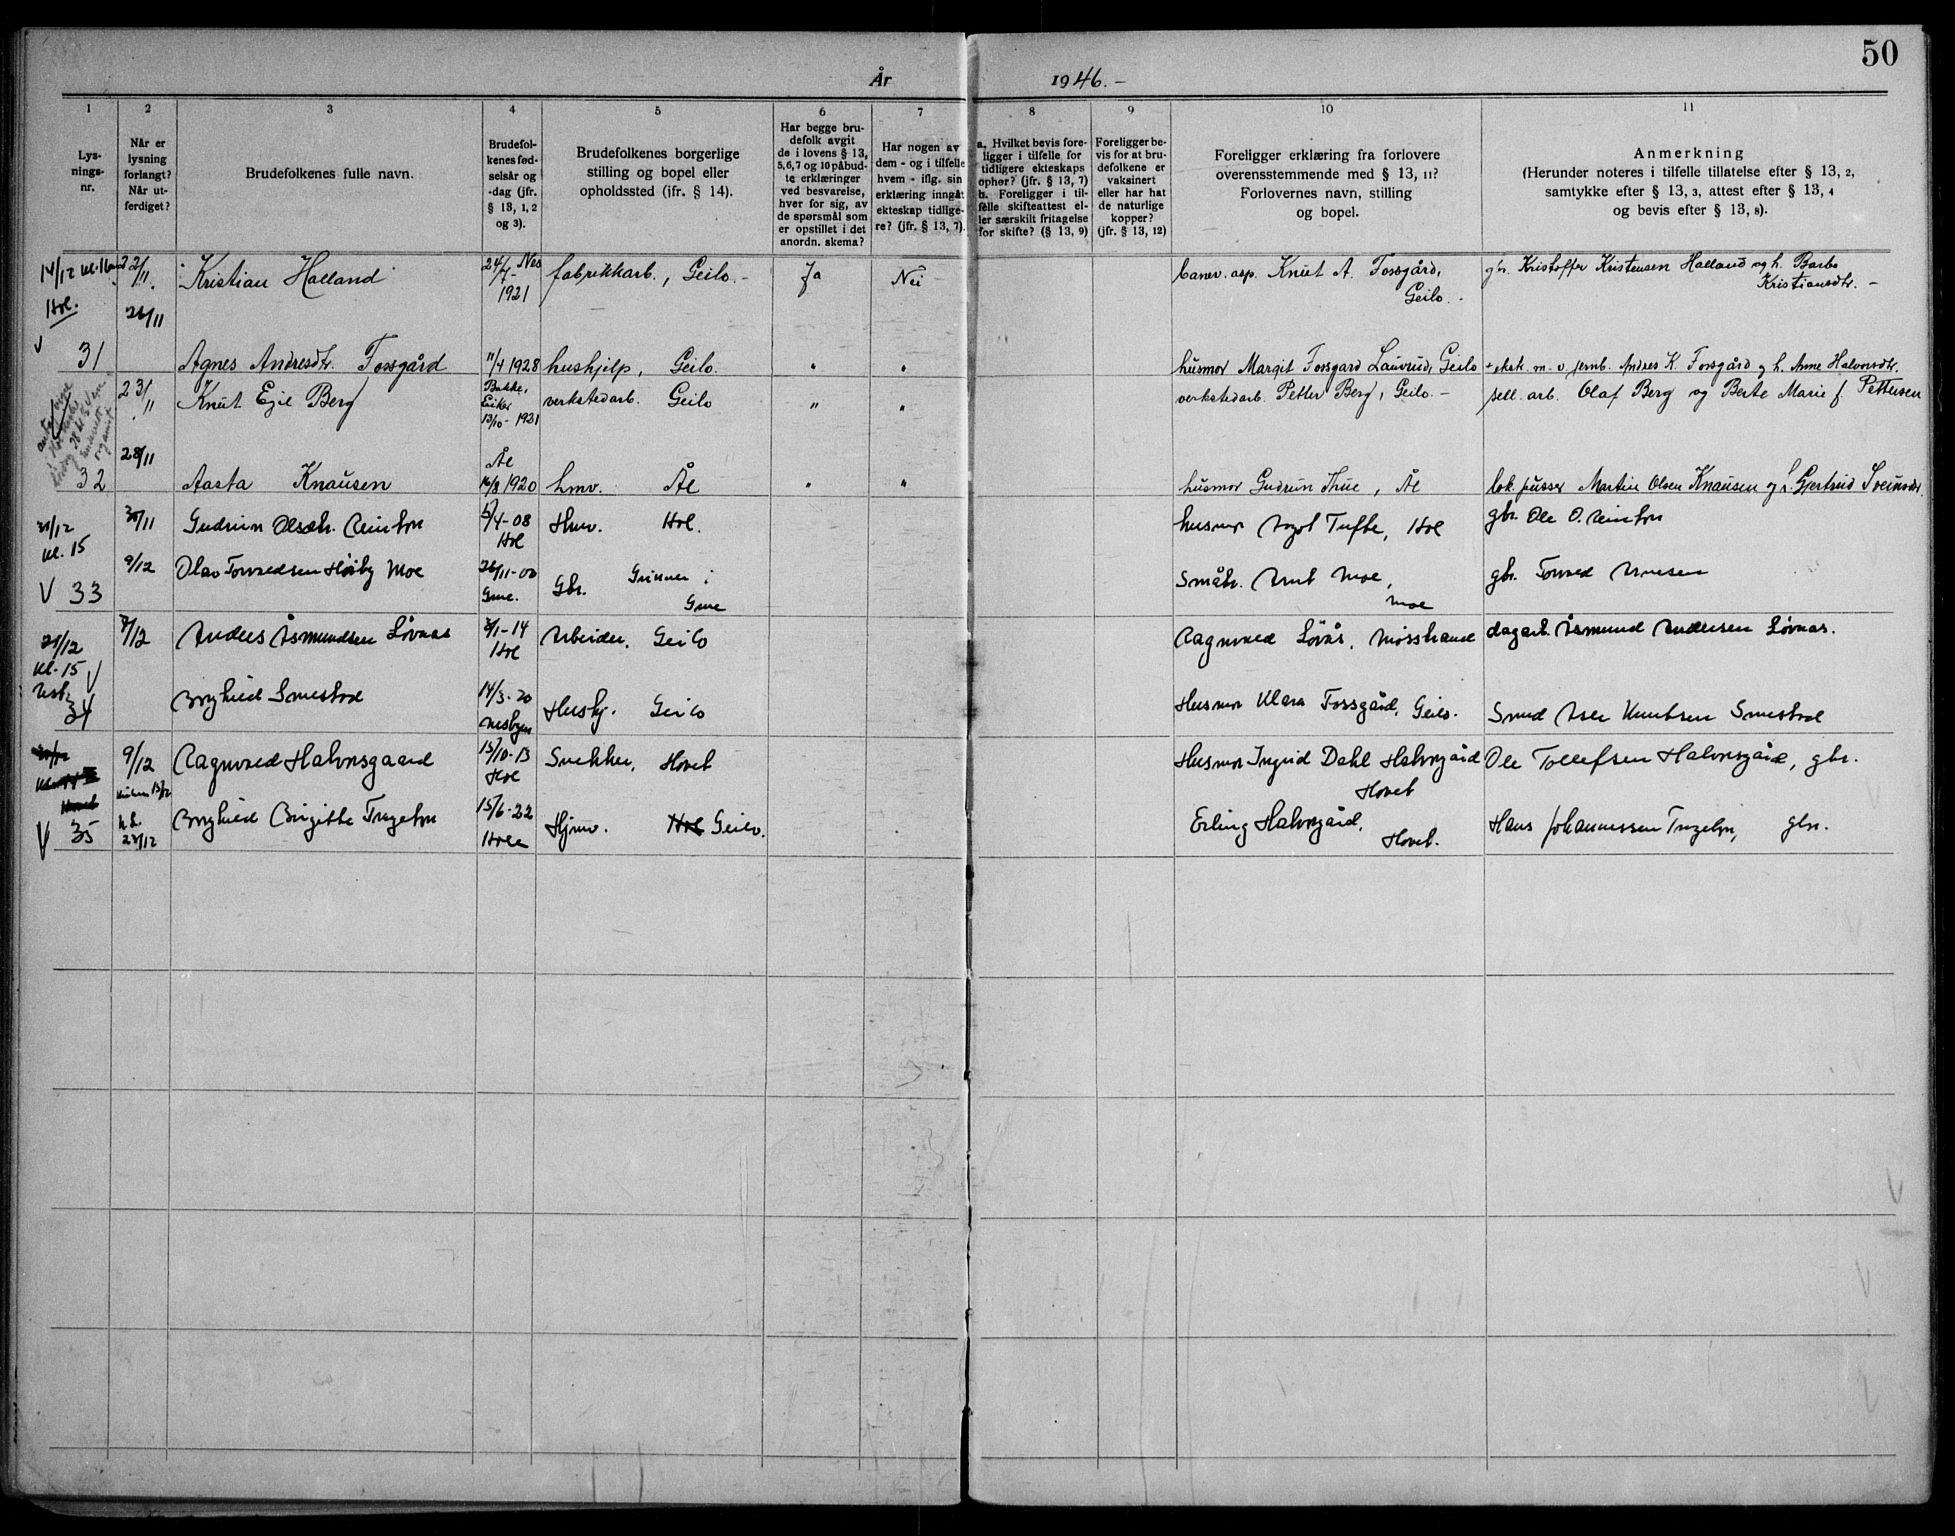 50
År 1946.-
1 2 3 4 5 6 7 8 9 10 11
Lys-
nings-
nr.
Når er
lysning
forlangt?
Når ut-
ferdiget?
Brudefolkenes fulle navn.
Brudefol-
kenes fød-
selsår og
-dag (jfr.
§ 13, 1, 2
og 3).
Brudefolkenes borgerlige
stilling og bopel eller
opholdssted (ifr. § 14).
Har begge bru-
defolk avgit
de i lovens § 13,
5,6,7 og 10 påbud-
te erklæringer
ved besvarelse,
hver for sig, av
de spørsmål som
er opstillet i det
anordn. skema?
Har nogen av
dem - og i tilfelle
hvem - iflg. sin
erklæring inngåt
ekteskap tidlige-
re? (jfr. § 13, 7).
a. Hvilket bevis fore-
ligger i tilfelle for
tidligere ekteskaps
ophør? (jfr. § 13, 7)
b. Foreligger i til-
felle skifteattest el-
ler særskilt fritagelse
for skifte? (§ 13, 9)
Foreligger be-
vis for at bru-
defolkene er
vaksinert
eller har hat
de naturlige
kopper?
(jfr. § 13, 12)
Foreligger erklæring fra forlovere
overensstemmende med § 13, 11?
Forlovernes navn, stilling
og bopel.
Anmerkning
(Herunder noteres i tilfelle tillatelse efter § 13, 2,
samtykke efter § 13, 3, attest efter § 13, 4
og bevis efter § 13, 8).
14/12 22/11 Kristian Halland 24/7- Nes fabrikkarb., Geilo. - Ja Nei Knut A. Fossgård, gbr. Kristoffer Kristensen Halland og h. Barbo
Hol. 1921 Geilo. - Kristiansdtr. -
31 Agnes Andresdtr. Fossgård 11/4 1928 hushjelp, Geilo. " " husmor Margit Fossgard Lauvrud, Geilo Andres K. Fossgård og h. Anne Halvorsdtr.
23/11 Knut Egil Berg Bakke, Eiker 13/10-1921 verkstedarb. Geilo " " verkstedarb. Petter Berg, Geilo. - sell. arb. Olaf Berg og Berte Marie f. Pettersen
28/11
32 Aasta Knausen Ål 1920 hmv. Ål " " husmor Gudrun Thue, Ål lok. pusser Martin Olsen Knausen og h. Gjertrud Sveinsdtr.
kl. 15 30/11 Gudrun Olsdtr. 5/4-08 Hol Hmv. Hol. husmor Tufte, Hol gbr. Ole O.
V 33 9/12 Olav Torvaldsen Moe 26/11-00 Grue. Gbr. Grinner i Grue Småbr. Arnt Moe, Moe gbr. Torvald
21/12 kl. 15 V 7/12 Anders Åsmundsen Løvaas /1-14 Hol Arbeider. Geilo Ragnvald Løvås, Mosstrand dagarb. Åsmund Andersen Løvaas.
34 Borghild Smestad 14/3-20 Nesbyen Hushj. Geilo Husmor Klara Fossgård, Geilo. Smed Asle Knutsen Smestad
9/12 Ragnvald Halvorsgaard 15/10-13 Hol Snekker, Hovet Husmor Ingrid Dahl Halvorsgård Hovet Ole Tollefsen Halvorsgård, gbr.
V 35 23/12 Borghild Birgitte 15/6-22 Hole Hjmv. Hol Geilo. Erling Halvorsgård, Hovet. Hans Johannessen gbr.